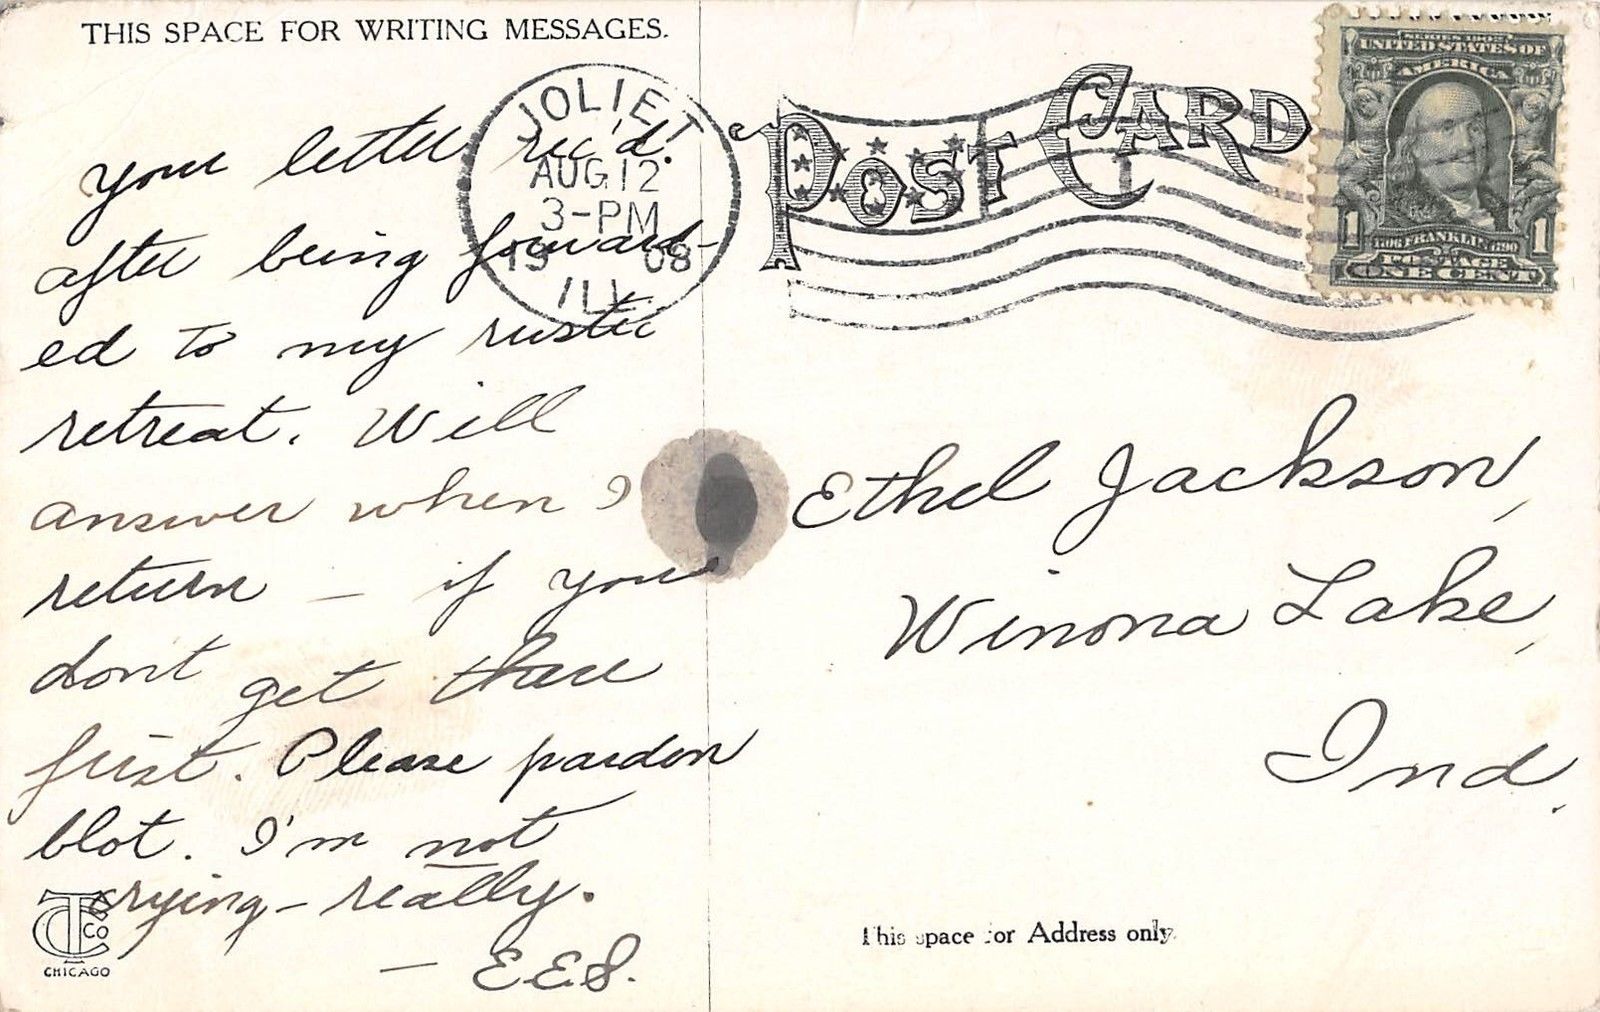 THIS SPACE FOR WRITING MESSAGES.
your letter rec'd.
after being forward-
ed to my rustic
retreat. Will
answer when I
return — if you
don't get there
first. Please pardon
blot. I'm not
crying — really.
— E.E.S.
CTCo
CHICAGO
JOLIET
AUG 12
3-PM
1908
ILL
POST CARD
SERIES 1902
UNITED STATES OF
AMERICA
1 1706 FRANKLIN 1790 1
POSTAGE
ONE CENT
Ethel Jackson,
Winona Lake,
Ind.
This space for Address only.